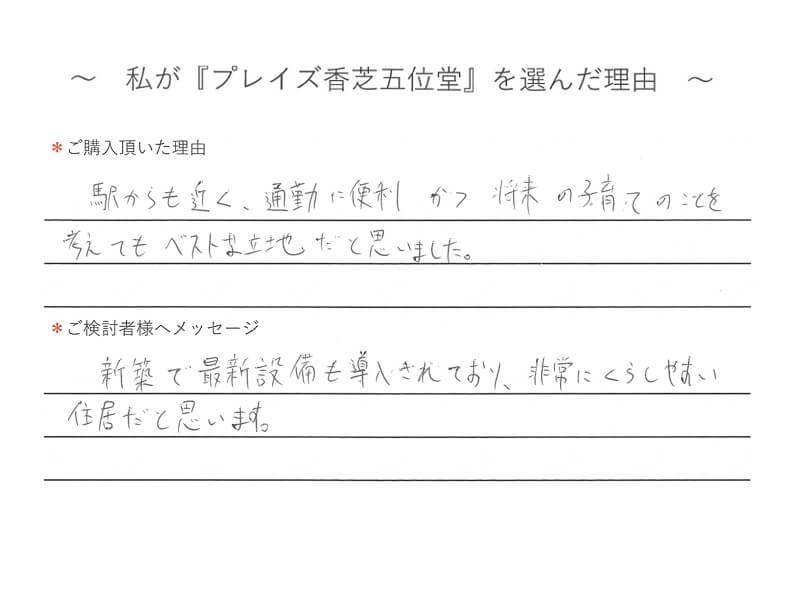 ～ 私が『プレイズ香芝五位堂』を選んだ理由 ～
＊ご購入頂いた理由
駅からも近く、通勤に便利 かつ 将来 の子育てのことを
考えても ベストな立地だと思いました。
＊ご検討者様へメッセージ
新築で最新設備も導入されており、非常にくらしやすい
住居だと思います。